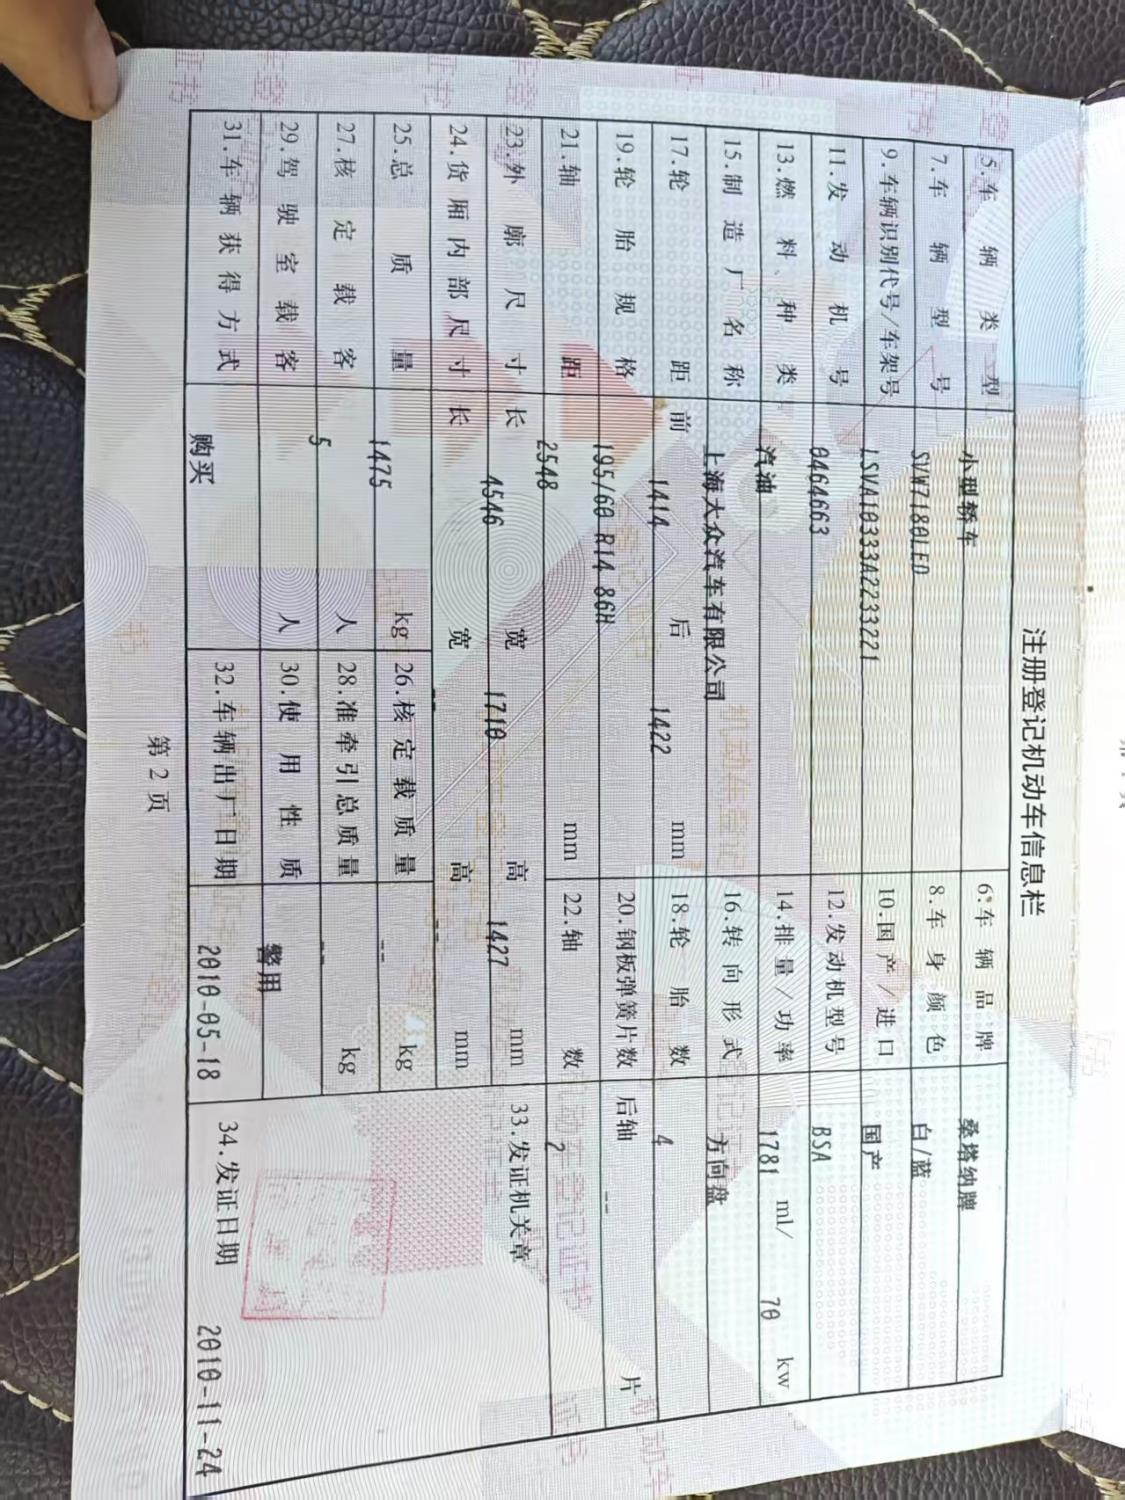 注册登记机动车信息栏
5.车辆类型 小型轿车 6.车辆品牌 桑塔纳牌
7.车辆型号 SVW7180LED 8.车身颜色 白/蓝
9.车辆识别代号/车架号 LSVA10333A2233221 10.国产/进口 国产
11.发动机号 0464663 12.发动机型号 BSA
13.燃料种类 汽油 14.排量/功率 1781 ml/ 70 kw
15.制造厂名称 上海大众汽车有限公司 16.转向形式 方向盘
17.轮距 前 1414 后 1422 mm 18.轮胎数 4
19.轮胎规格 195/60 R14 86H 20.钢板弹簧片数 后轴 -- 片
21.轴距 2548 mm 22.轴数 2
23.外廓尺寸 长 4546 宽 1710 高 1427 mm 33.发证机关章
24.货厢内部尺寸 长 宽 -- 高 -- mm
25.总质量 1475 kg 26.核定载质量 -- kg
27.核定载客 5 人 28.准牵引总质量 -- kg
29.驾驶室载客 人 30.使用性质 警用
31.车辆获得方式 购买 32.车辆出厂日期 2010-05-18 34.发证日期 2010-11-24
第2页